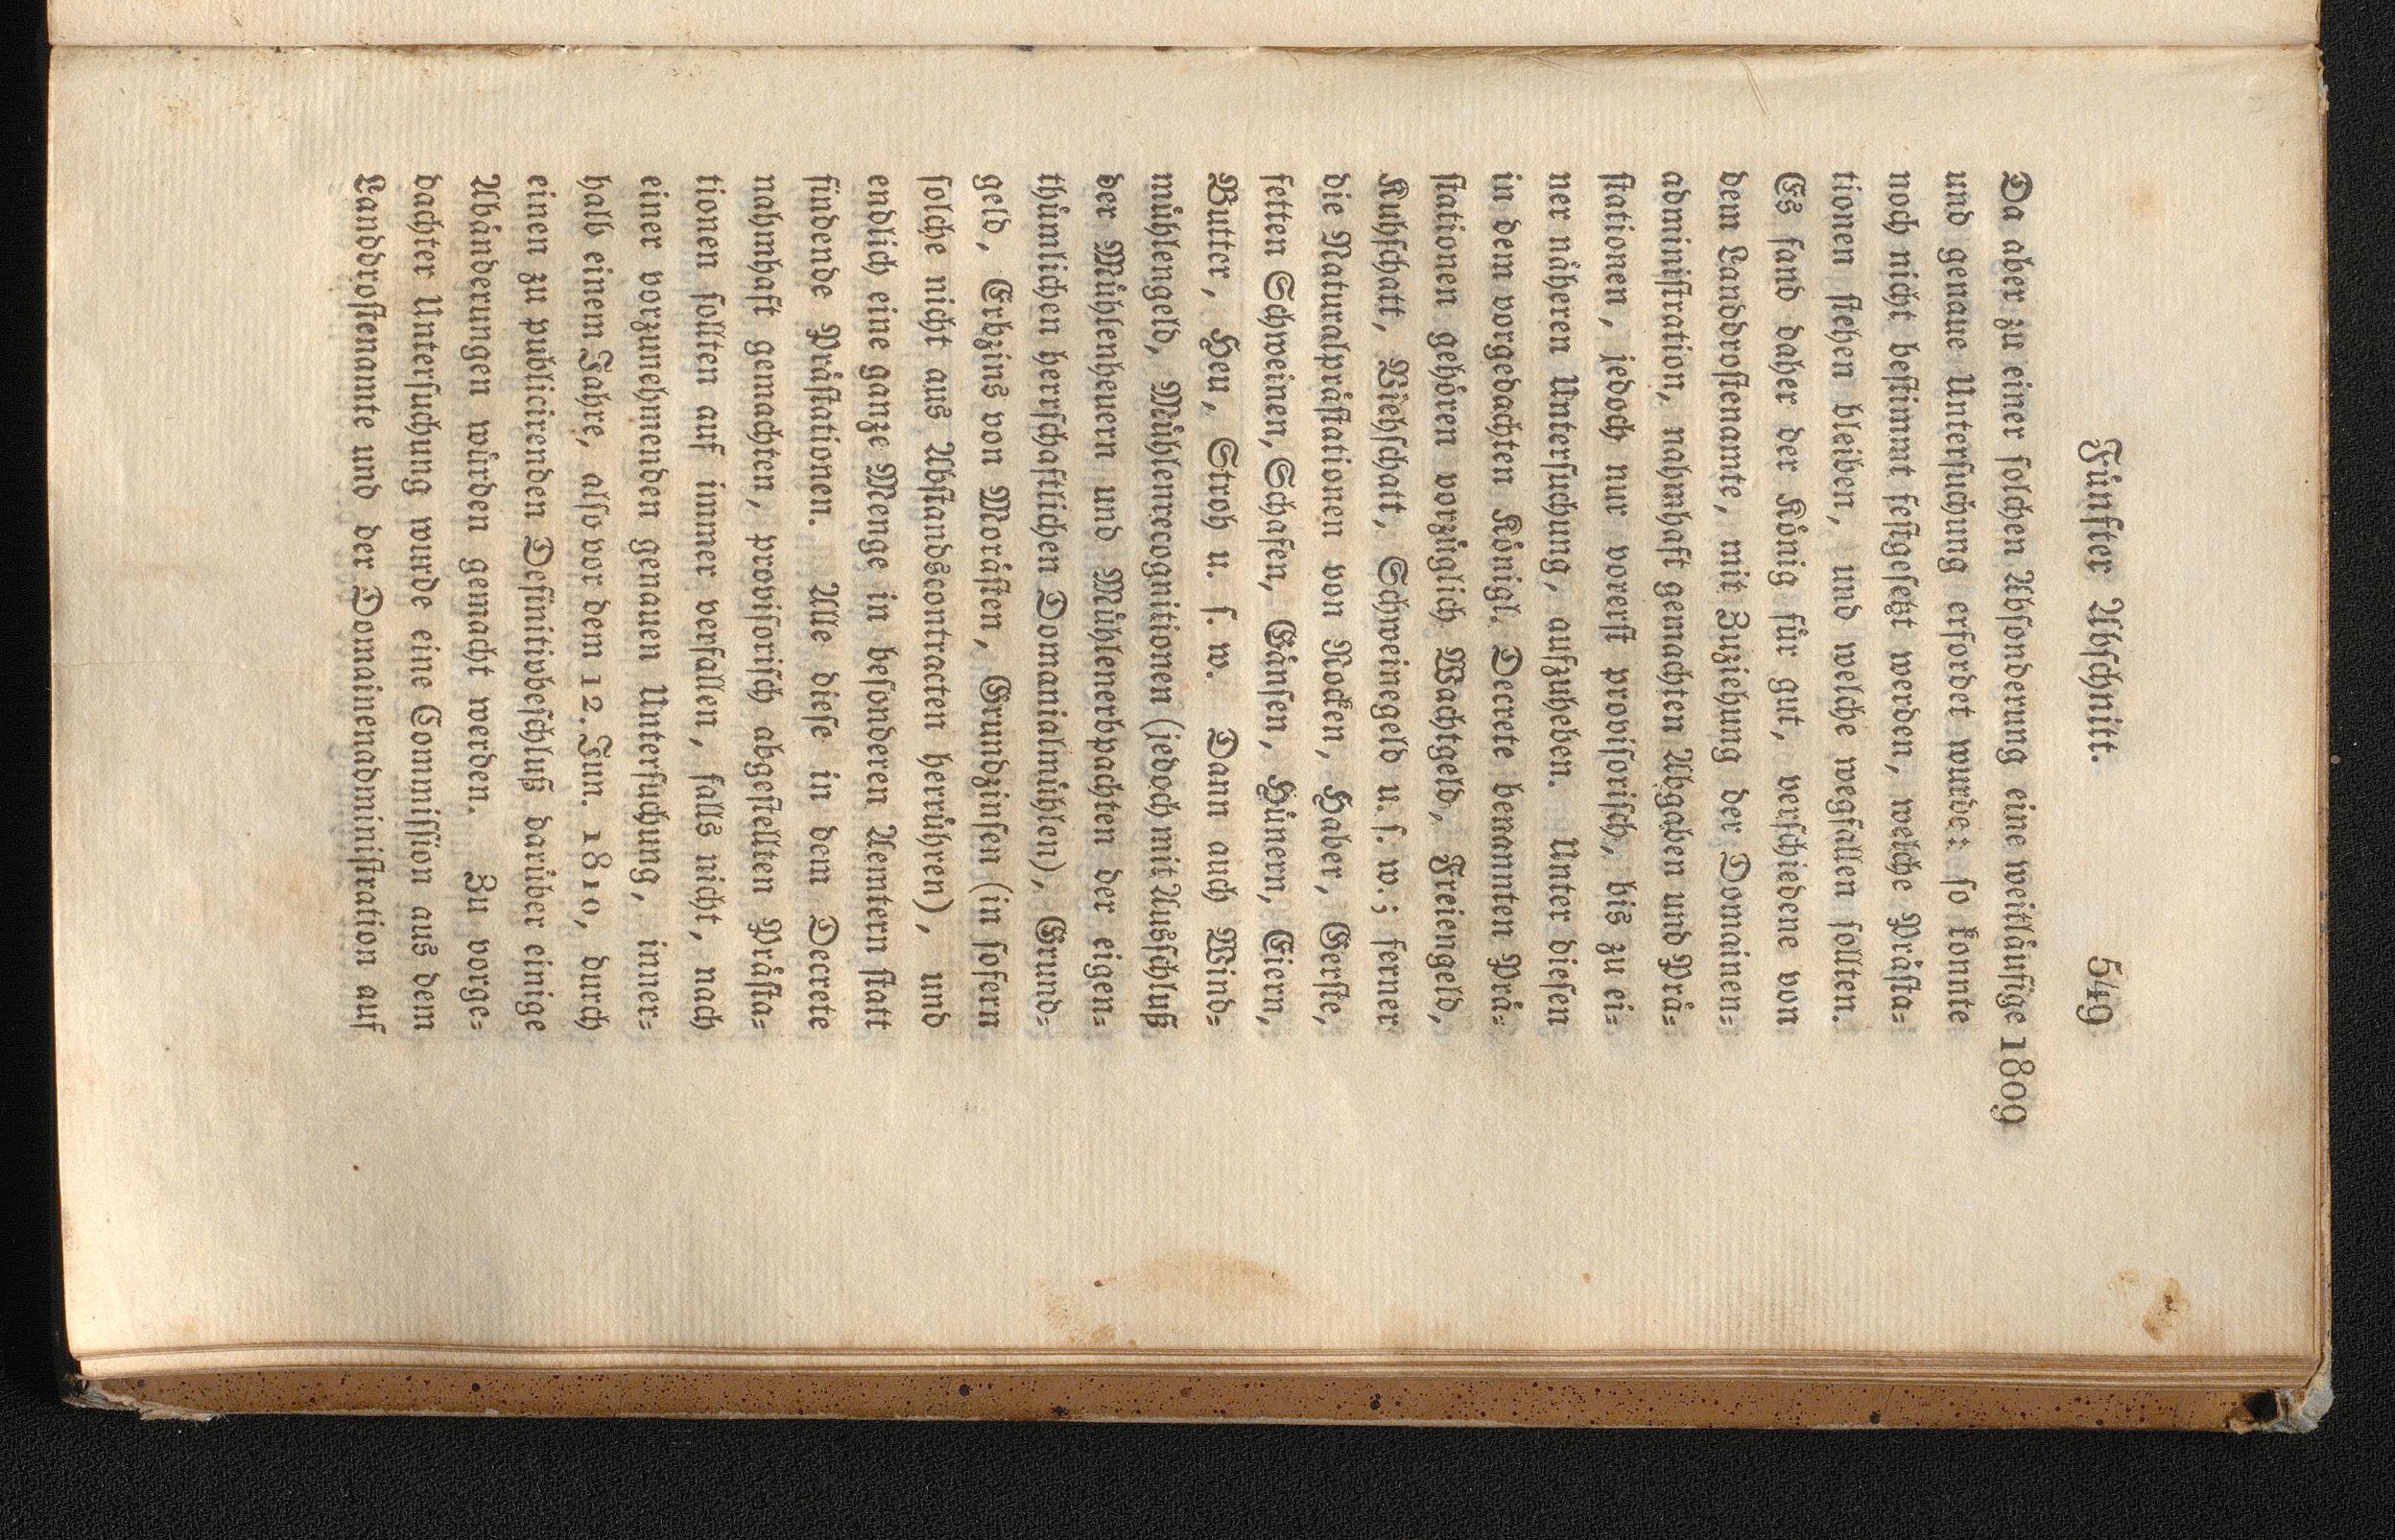 Fünfter Abschnitt. 549
Da aber zu einer solchen Absonderung eine weitläufige 1809
und genaue Untersuchung erfordet wurde: so konnte
noch nicht bestimmt festgesetzt werden, welche Prästa-
tionen stehen bleiben, und welche wegfallen sollten.
Es fand daher der König für gut, verschiedene von
dem Landdrostenamte, mit Zuziehung der Domainen-
administration, nahmhaft gemachten Abgaben und Prä-
stationen, jedoch nur vorerst provisorisch, bis zu ei-
ner näheren Untersuchung, aufzuheben. Unter diesen
in dem vorgedachten Königl. Decrete benannten Prä-
stationen gehören vorzüglich Wachtgeld, Freiengeld,
Kuhschatt, Viehschatt, Schweinegeld u. s. w.; ferner
die Naturalprästationen von Rocken, Haber, Gerste,
fetten Schweinen, Schafen, Gänsen, Hünern, Eiern,
Butter, Heu, Stroh u. s. w. Dann auch Wind-
mühlengeld, Mühlenrecognitionen (jedoch mit Ausschluß
der Mühlenheuern und Mühlenerbpachten der eigen-
thümlichen herrschaftlichen Domanialmühlen), Grund-
geld, Erbzins von Morästen, Grundzinsen (in sofern
solche nicht aus Abstandscontracten herrühren), und
endlich eine ganze Menge in besonderen Aemtern statt
findende Prästationen. Alle diese in dem Decrete
nahmhaft gemachten, provisorisch abgestellten Prästa-
tionen sollten auf immer verfallen, falls nicht, nach
einer vorzunehmenden genauen Untersuchung, inner-
halb einem Jahre, also vor dem 12. Jun. 1810, durch
einen zu publicirenden Definitivbeschluß darüber einige
Abänderungen würden gemacht werden. Zu vorge-
dachter Untersuchung wurde eine Commission aus dem
Landdrostenamte und der Domainenadministration auf